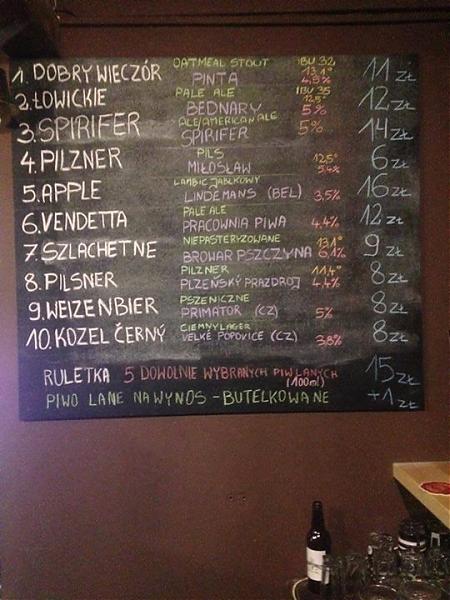 1. DOBRY WIECZÓR OATMEAL STOUT PINTA IBU 32 13.1° 4,9% 11 ZŁ
2. ŁOWICKIE PALE ALE BEDNARY IBU 35 12,5° 5% 12 ZŁ
3. SPIRIFER ALE/AMERICAN ALE SPIRIFER 5% 14 ZŁ
4. PILZNER PILS MIŁOSŁAW 12,5° 5,4% 6 ZŁ
5. APPLE LAMBIC JABŁKOWY LINDEMANS (BEL) 3,5% 16 ZŁ
6. VENDETTA PALE ALE PRACOWNIA PIWA 4,4% 12 ZŁ
7. SZLACHETNE NIEPASTERYZOWANE BROWAR PSZCZYNA 13,1° 6,1% 9 ZŁ
8. PILSNER PILZNER PLZEŃSKÝ PRAZDROJ 11,4° 4,4% 8 ZŁ
9. WEIZENBIER PSZENICZNE PRIMATOR (CZ) 5% 8 ZŁ
10. KOZEL ČERNÝ CIEMNY LAGER VELKÉ POPOVICE (CZ) 3,8% 8 ZŁ
RULETKA 5 DOWOLNIE WYBRANYCH PIW LANYCH 15 ZŁ
(100ml)
PIWO LANE NA WYNOS - BUTELKOWANE +1 ZŁ